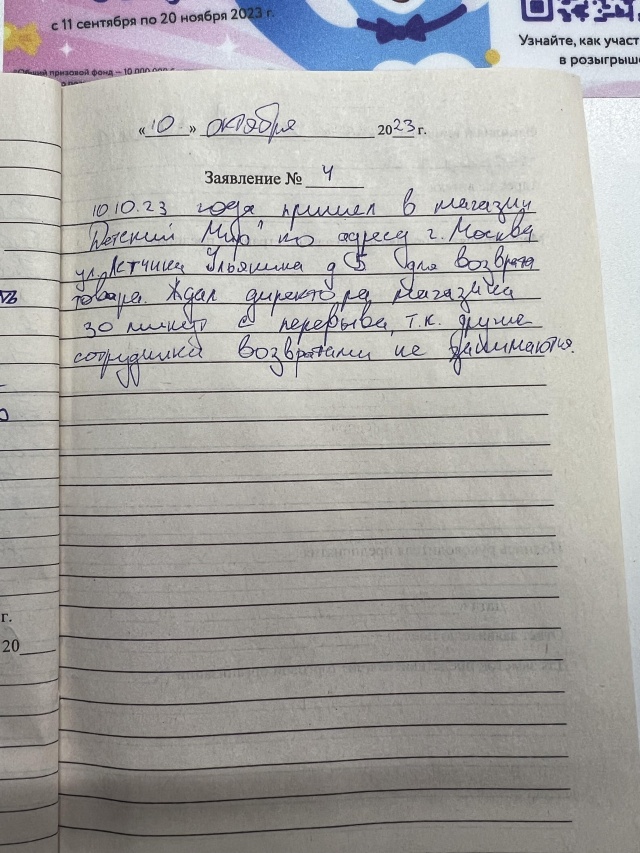 с 11 сентября по 20 ноября 2023 г.
*Общий призовой фонд — 10 000 000
Узнайте, как участ
в розыгрыше
«10» октября 2023 г.
Заявление № 4
10.10.23 года пришел в магазин
"Детский Мир" по адресу г. Москва
ул. Летчика Ульянина д 5 для возврата
товара. Ждал директора магазина
30 минут с перерыва, т.к. другие
сотрудники возвратами не занимаются.
г.
20